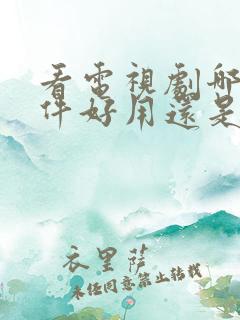 看電視劇哪
件好用還是
衣里薩
未经同意禁止转载